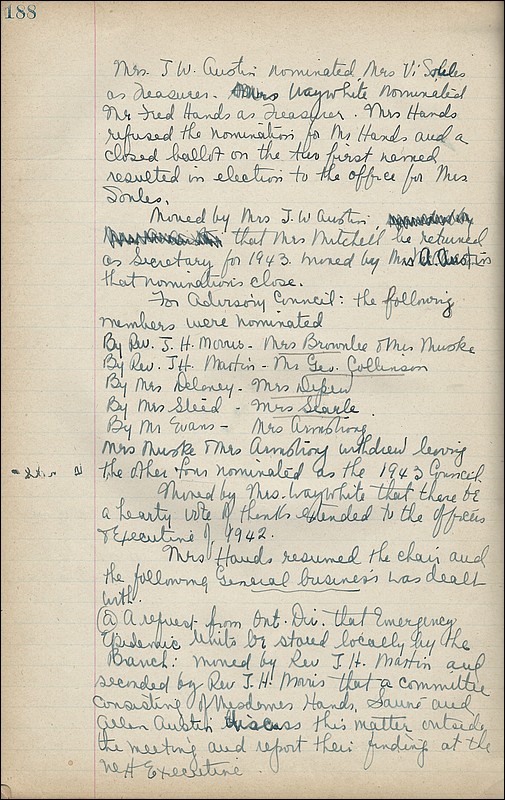 188
Mrs. J. W. Austin nominated Mrs Vi Soules
as Treasurer. Mrs Waywhite nominated
Mr Fred Hands as Treasurer. Mrs Hands
refused the nomination for Mr Hands and a
closed ballot on the two first named
resulted in election to the office for Mrs
Soules.
Moved by Mrs J. W Austin,
that Mrs Mitchell be returned
as Secretary for 1943. Moved by Mrs A. Austin
that nominations close.
For Advisory Council: the following
members were nominated
By Rev. J. H. Morris - Mrs Brownlee & Mrs Muske
By Rev. J H. Martin - Mr Geo. Collinson
By Mrs Delaney - Mrs
By Mrs Steed - Mrs Searle.
By Mr Evans - Mrs Armstrong
Mrs Muske & Mrs Armstrong withdrew leaving
the other four nominated as the 1943 Council.
Moved by Mrs. Waywhite that there be
a hearty vote of thanks extended to the officers
& Executive of 1942.
Mrs Hands resumed the chair and
the following General business was dealt
with.
(a) A request from Ont. Div. that Emergency
Epidemic Units be stored locally by the
Branch: moved by Rev J. H. Martin and
seconded by Rev J. H. Morris that a committee
consisting of Mesdames Hands, and
Allen Austin discuss this matter outside
the meeting and report their finding at the
next Executive.